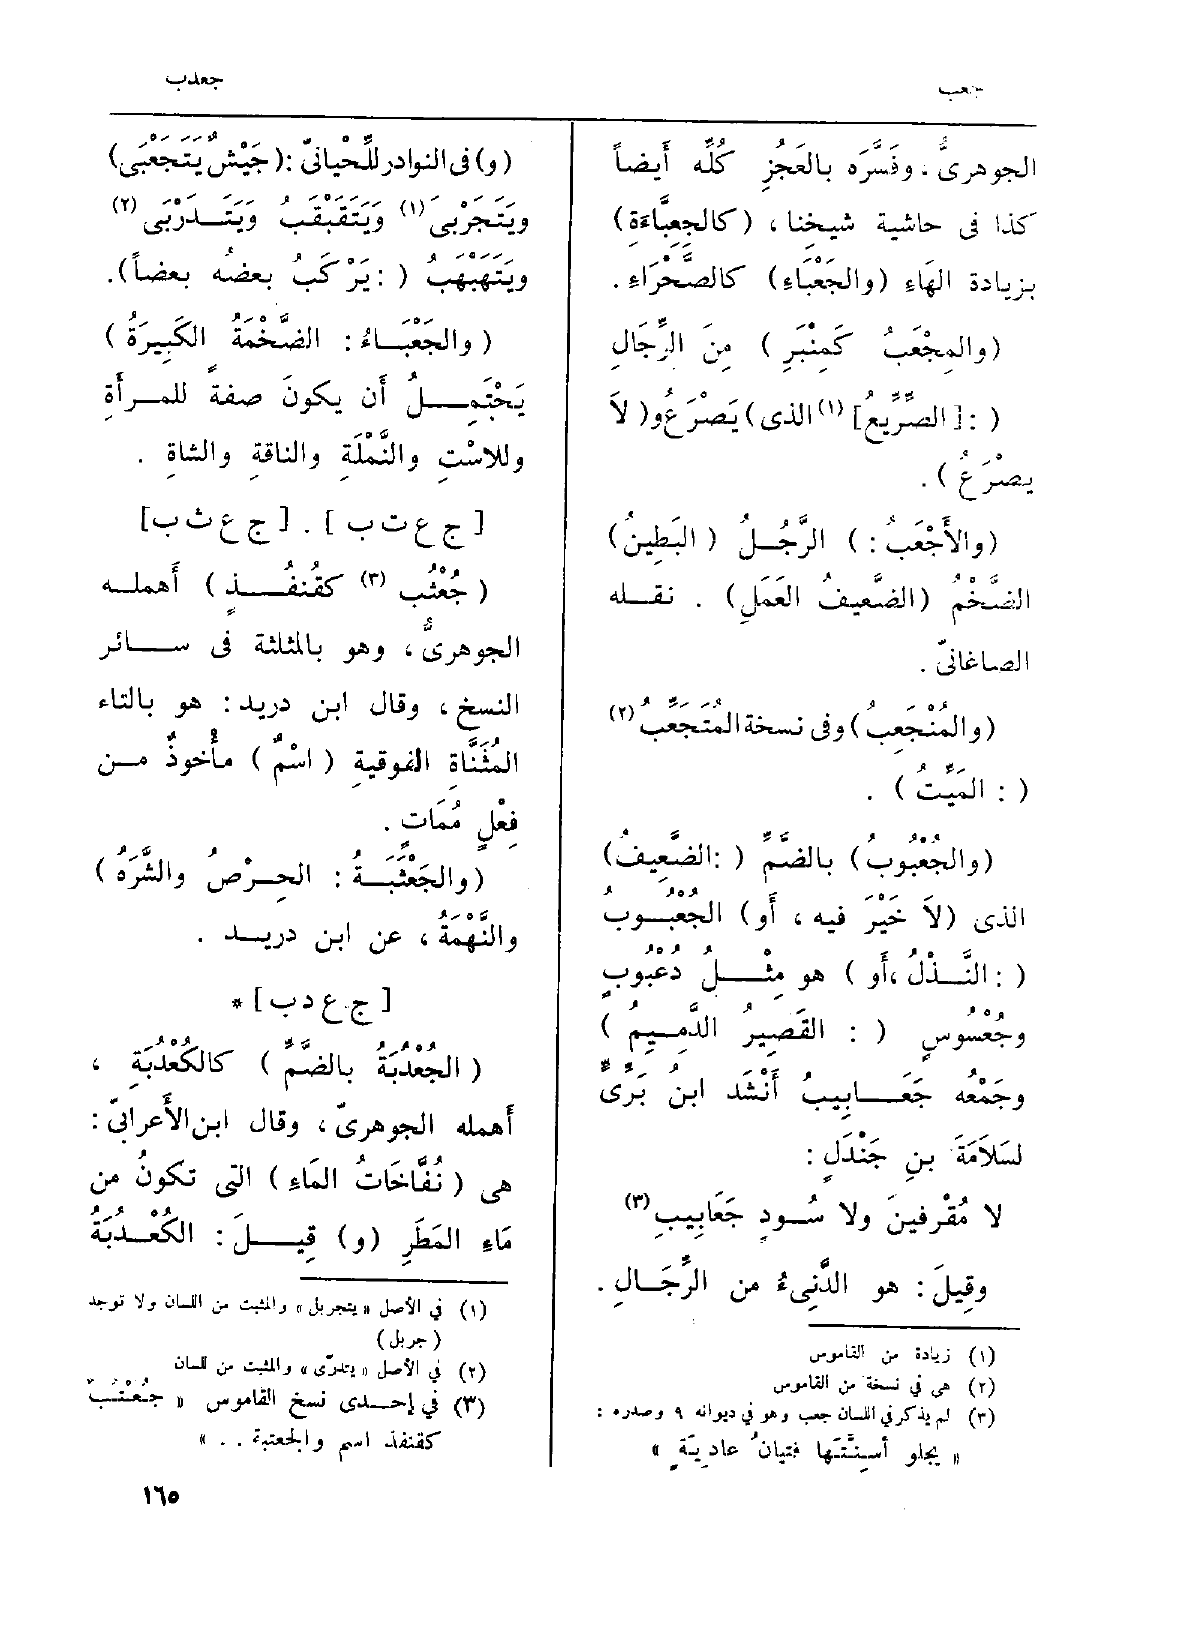 جعب
جعدب
الجوهرىُّ، وفَسَّرَه بالعَجُزِ كُلِّه أَيضاً
كذا فى حاشية شيخِنا، (كالجِعِبَّاءَةِ)
بزيادة الهَاءِ (والجَعْبَاءِ) كالصَّحْرَاءِ.
(والمِجْعَبُ كَمِنْبَرٍ) مِنَ الرِّجَالِ
( : [الصِّرِّيعُ] (١) الذى) يَصْرَعُ و(لاَ
يصْرَعُ).
(والأَجْعَبُ : ) الرَّجُلُ (البَطِينُ)
الضَّخْمُ (الضَّعِيفُ العَمَلِ). نقله
الصاغانىّ.
(والمُنْجَعِبُ) وفى نسخة المُتَجَعِّبُ (٢)
( : المَيِّتُ).
(والجُعْبُوبُ) بالضَّمِّ ( :الضَّعِيفُ)
الذى (لاَ خَيْرَ فيه، أَو) الجُعْبُوبُ
( : النَّذْلُ، أَو) هو مِثْلُ دُعْبُوبٍ
وجُعْسُوسٍ ( : القَصِيرُ الدَّمِيمُ)
وجَمْعُه جَعَابِيبُ أَنْشَد ابنُ بَرِّىٍّ
لسَلَامَةَ بنِ جَنْدَلٍ :
لا مُقْرِفينَ ولا سُودٍ جَعَابِيبِ (٣)
وقِيلَ : هو الدَّنِىءُ من الرِّجَالِ.
(١) زيادة من القاموس
(٢) هى في نسخة من القاموس
(٣) لم يذكر في اللسان جعب وهو في ديوانه ٩ وصدره :
« يجلو أسِنَّتَها فتيانُ عاديَةٍ »
(و) فى النوادر للِّحْيانىّ : (جَيْشٌ يَتَجَعْبَى)
ويَتَجَرْبى (١) ويَتَقَبْقَبُ ويَتَدَرْبَى (٢)
ويَتَهَبْهَبُ ( : يَرْكَبُ بعضُه بعضاً).
(والجَعْبَاءُ : الضَّخْمَةُ الكَبِيرَةُ)
يَحْتَمِلُ أَن يكونَ صفةً للمرأَةِ
وللاسْتِ والنَّمْلَةِ والناقةِ والشاةِ.
[ ج ع ت ب ] . [ ج ع ث ب ]
(جُعْثُب (٣) كقُنفُذٍ) أَهمله
الجوهرىُّ، وهو بالمثلثة فى سائر
النسخ، وقال ابن دريد : هو بالتاء
المُثَنَّاةِ الفوقيةِ (اسْمٌ) مأْخوذٌ من
فِعْلٍ مُمَاتٍ.
(والجَعْثَبَةُ : الحِرْصُ والشَّرَهُ)
والنَّهْمَةُ، عن ابن دريد.
[ ج ع د ب ] *
(الجُعْدُبَةُ بالضَّمِّ) كالكُعْدُبَةِ،
أَهمله الجوهرىّ، وقال ابن الأَعرابىّ :
هى (نُفَّاخَاتُ المَاءِ) التى تكونُ من
مَاءِ المَطَرِ (و) قِيلَ : الكُعْدُبَةُ
(١) في الأصل « يتجربل » والمثبت من اللسان ولا توجد
(جربل)
(٢) في الأصل « يتدرّى » والمثبت من اللسان
(٣) في إحدى نسخ القاموس « جُعْتُبٌ
كقنفذ اسم والجعتبة . . »
١٦٥